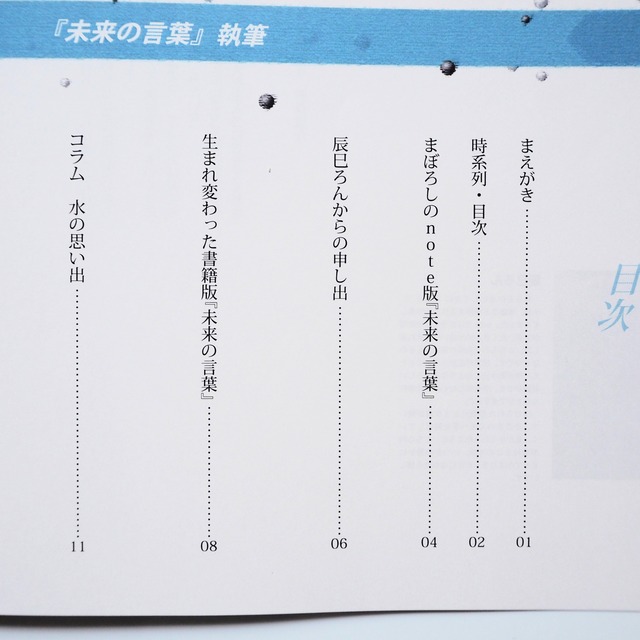 『未来の言葉』執筆
目次
まえがき……………………………… 01
時系列・目次……………………………… 02
まぼろしのnote版『未来の言葉』……………… 04
辰巳ろんからの申し出……………………… 06
生まれ変わった書籍版『未来の言葉』……………… 08
コラム　水の思い出……………………… 11